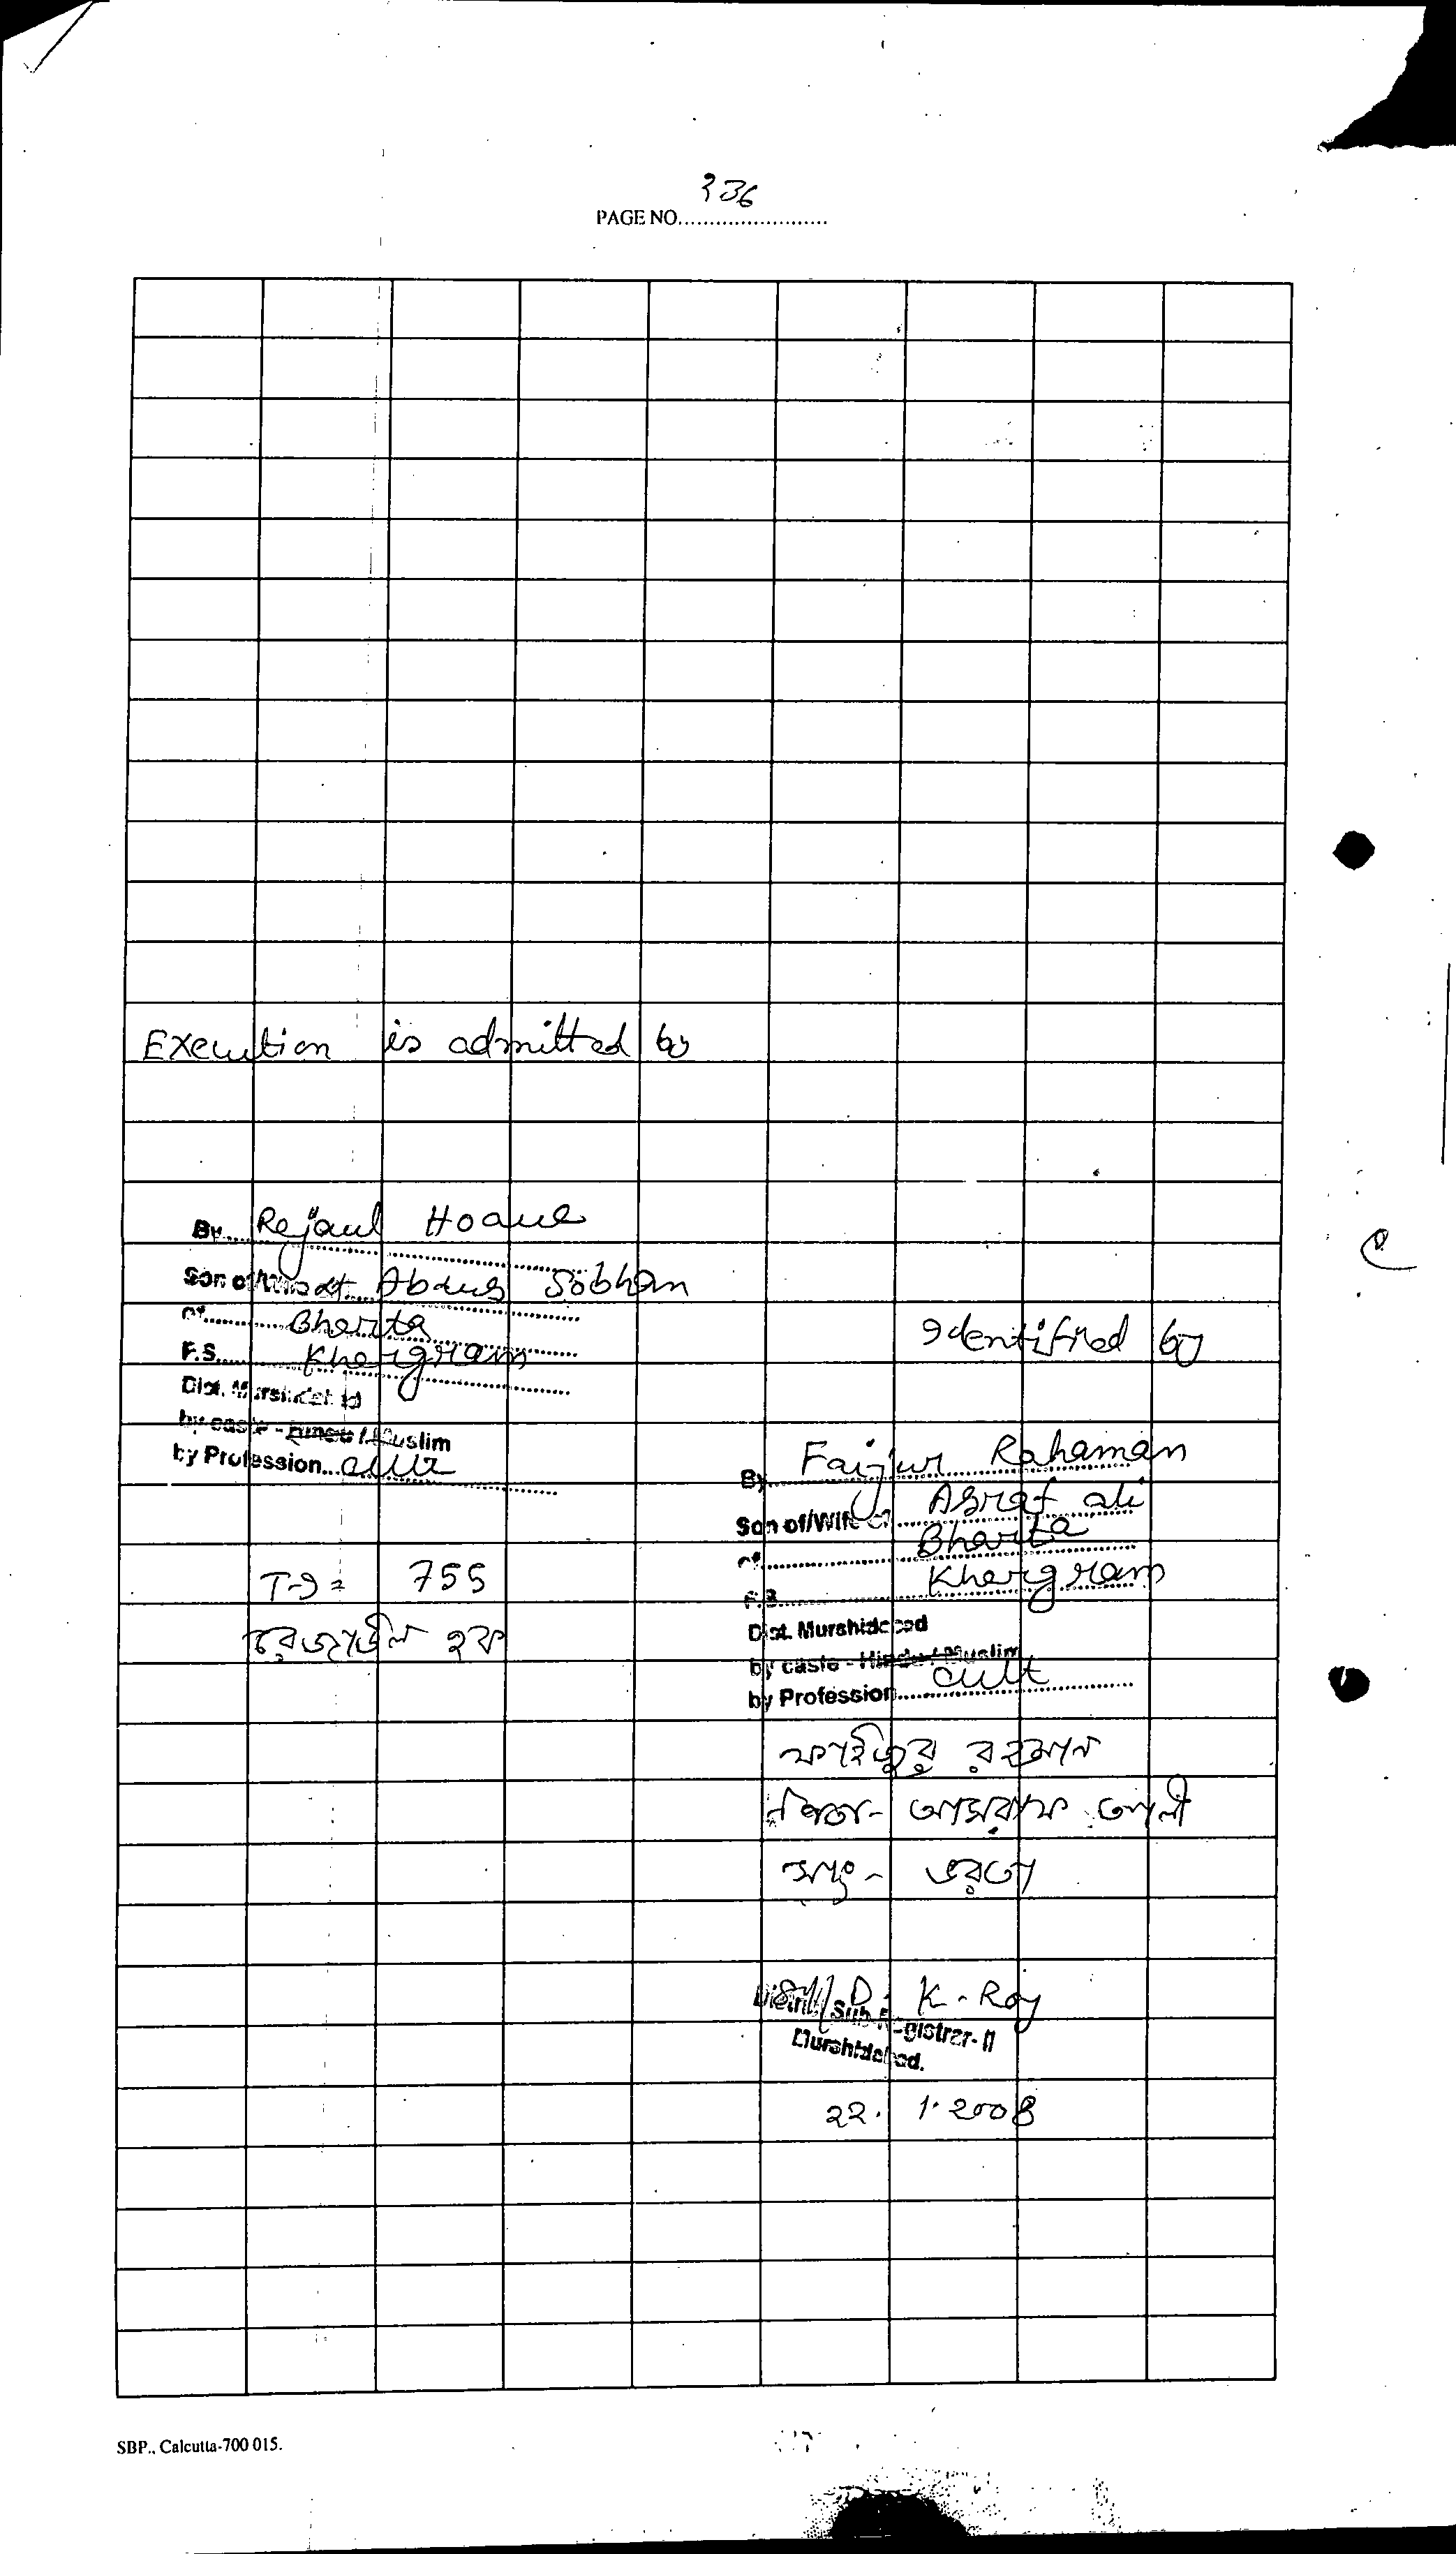 336
PAGE NO........................
Execution is admitted by
By..... Rejaul Hoaue
Son of/Wife of Abdus Sobhan
of......... Bharta
P.S...... Khargram
Dist. Murshidabad
by caste - Hindu / Muslim
by Profession... cult
T-I = 755
রেজাউল হক
Identified by
By Faijur Rahaman
Son of/Wife of Asraf ali
of......... Bharta
P.S...... Khargram
Dist. Murshidabad
by caste - Hindu / Muslim
by Profession...... cult
ফাইজুর রহমান
পিতা- আসরাফ আলী
সাং- ভরতা
Sd/ D. K. Roy
District Sub-Registrar-II
Murshidabad.
22. 1. 2008
SBP., Calcutta-700 015.